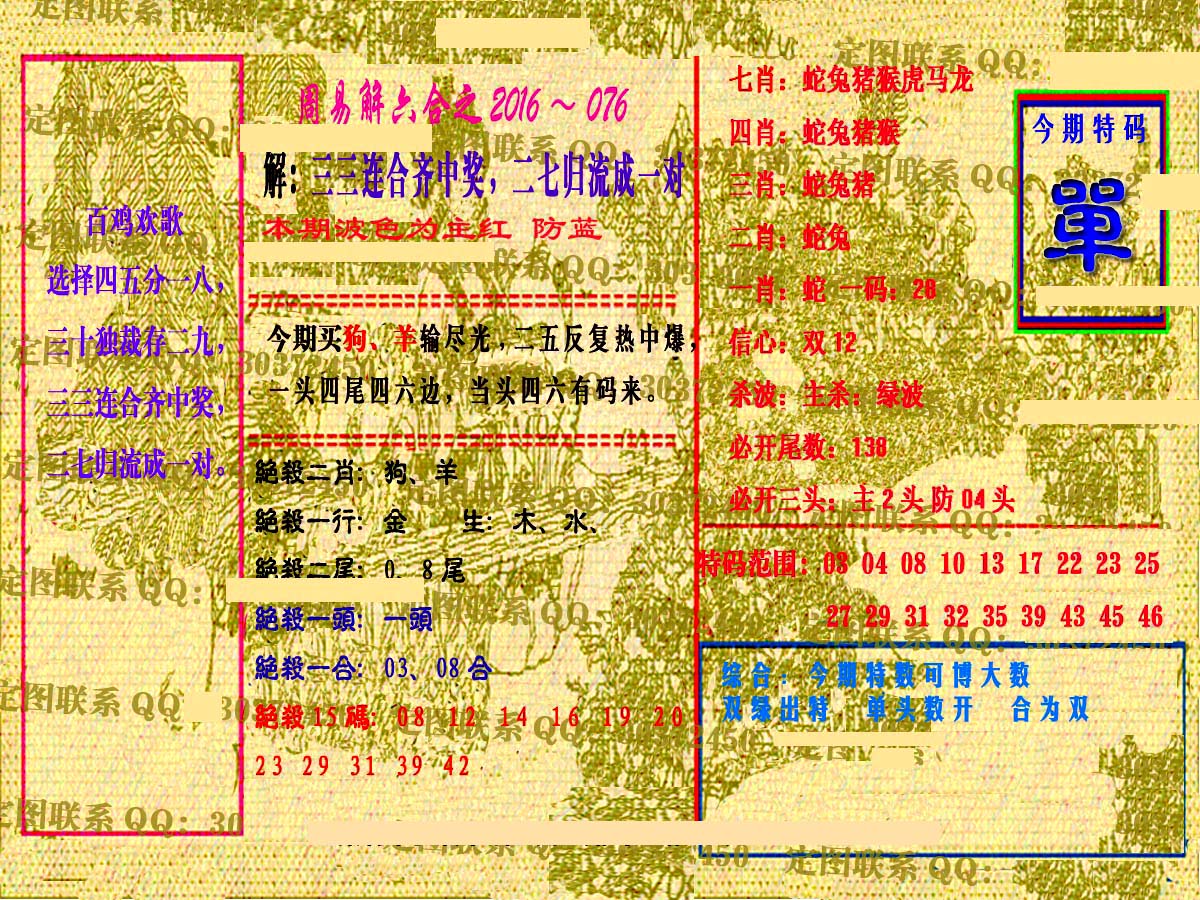 周易解六合之 2016 ~ 076
解：三三连合齐中奖，二七归流成一对
本期波色为主红 防蓝
百鸡欢歌
选择四五分一八，
三十独裁存二九，
三三连合齐中奖，
二七归流成一对。
今期买狗、羊输尽光，二五反复热中爆，
一头四尾四六边，当头四六有码来。
絕殺二肖：狗、羊
絕殺一行：金 生：木、水、
絕殺二尾：0、8尾
絕殺一頭：一頭
絕殺一合：03、08合
絕殺15碼：08 12 14 16 19 20
23 29 31 39 42
七肖：蛇兔猪猴虎马龙
四肖：蛇兔猪猴
三肖：蛇兔猪
二肖：蛇兔
一肖：蛇 一码：28
信心：双12
杀波：主杀：绿波
必开尾数：138
必开三头：主2头防04头
今期特码
單
特码范围：03 04 08 10 13 17 22 23 25
27 29 31 32 35 39 43 45 46
综合：今期特数可博大数
双绿出特 单头数开 合为双
定图联系 QQ：